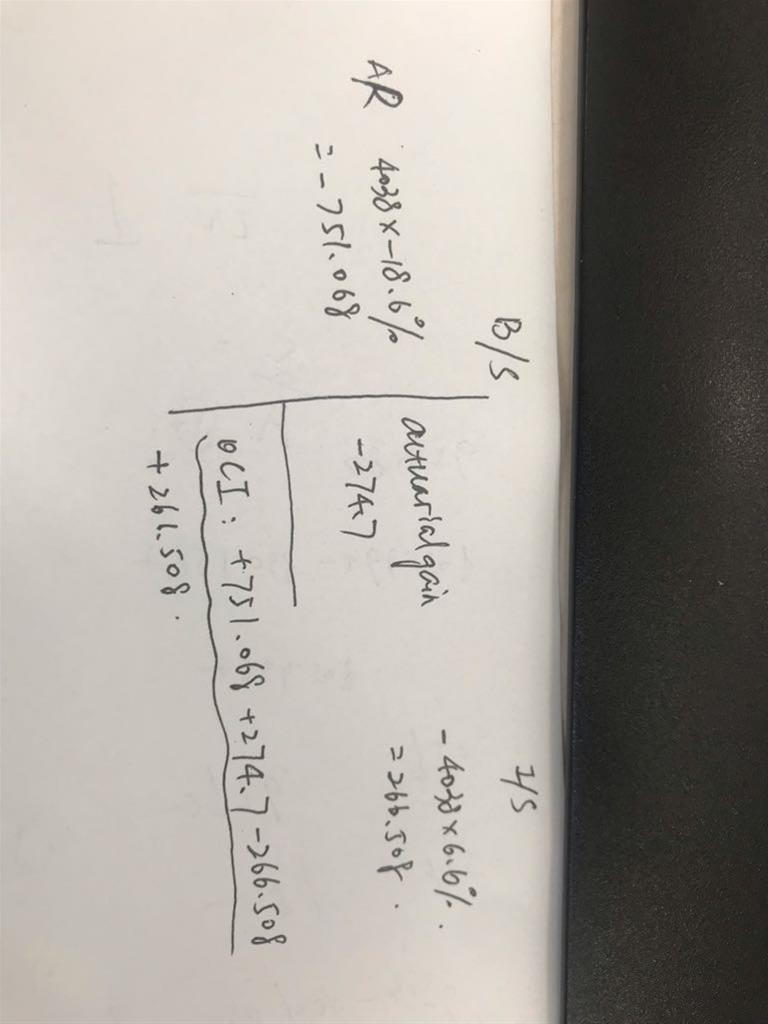 B/S
I/S
AR 4038 x -18.6%
= -751.068
actuarial gain
-274.7
- 4038 x 6.6%.
= 266.508.
OCI: +751.068 +274.7 -266.508
+ 266.508.